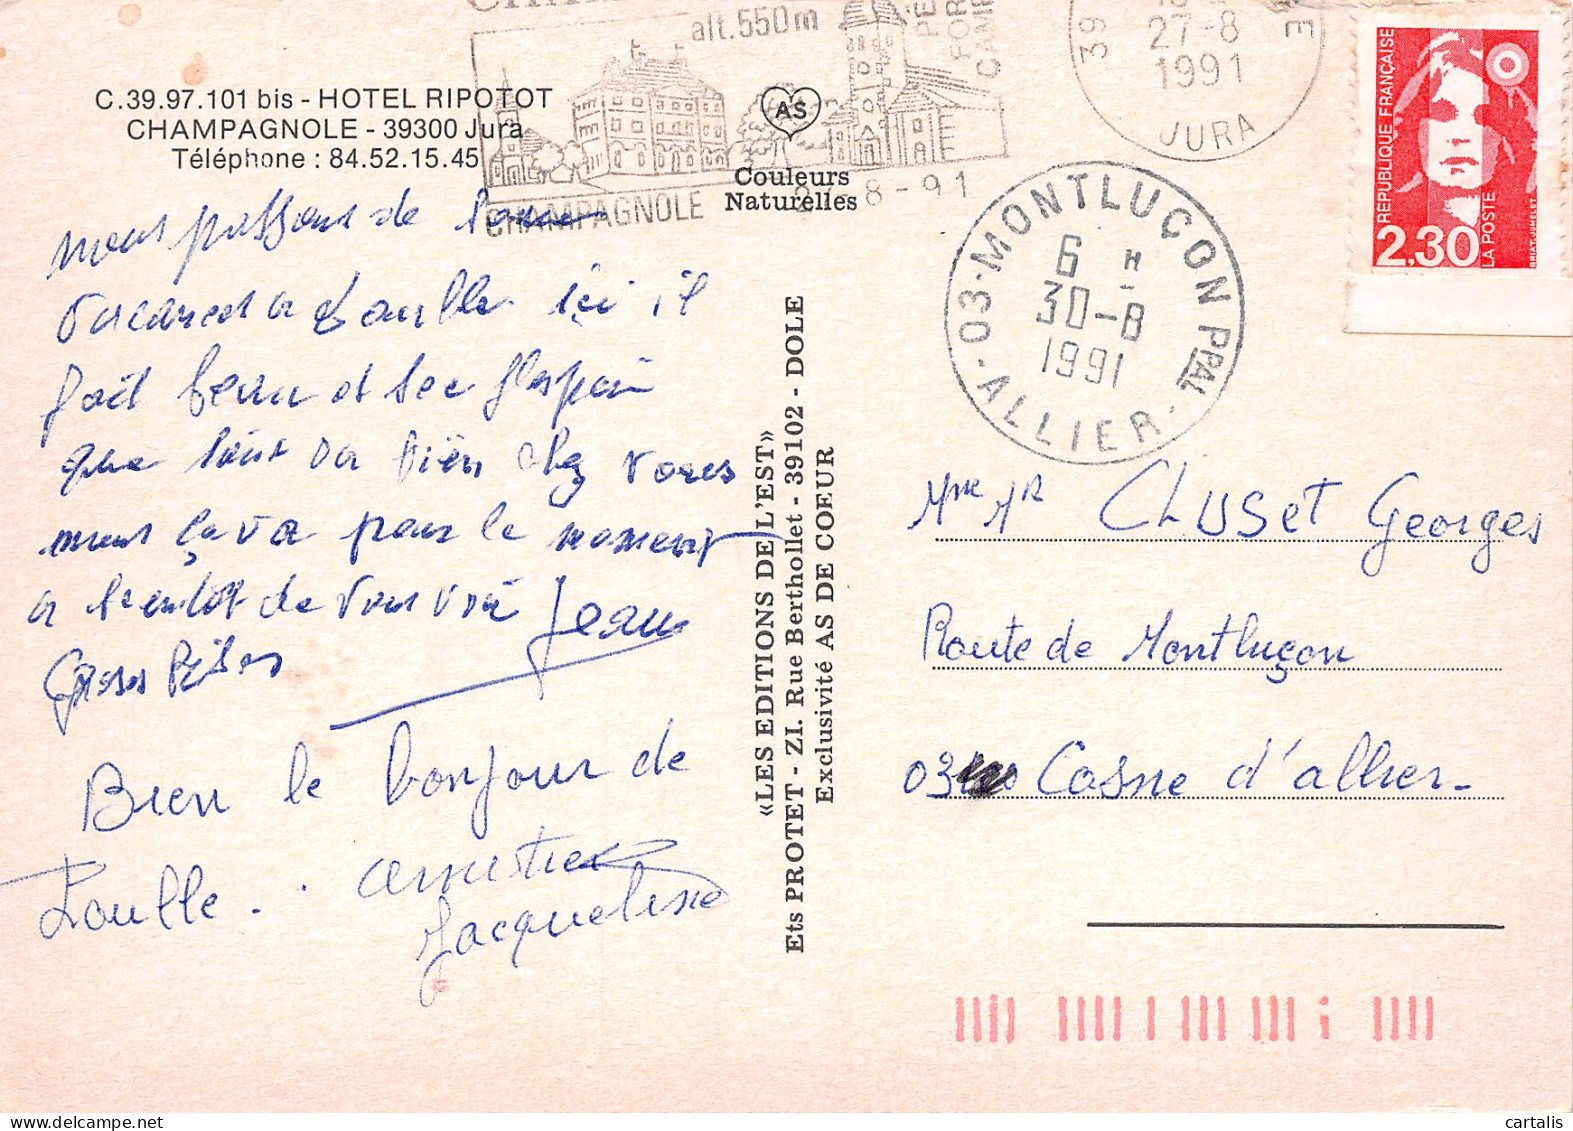 alt.550m
CHAMPAGNOLE
27-8-91
39
27-8
1991
JURA
REPUBLIQUE FRANÇAISE
2,30
LA POSTE
BRIAT-JUMELET
C.39.97.101 bis - HOTEL RIPOTOT
CHAMPAGNOLE - 39300 Jura
Téléphone : 84.52.15.45
AS
Couleurs
Naturelles
03·MONTLUÇON PPAL
6 H
30-8
1991
-ALLIER-
nous passons de bonne
vacances a ici il
fait beau et sec j'espair
que tout va bien chez vous
nous ça va pour le moment
a bientôt de vous voir Jean
Gros Bises
Bien le bonjour de
amitiés
Jacqueline
«LES EDITIONS DE L'EST»
Ets PROTET - ZI. Rue Berthollet - 39102 - DOLE
Exclusivité AS DE COEUR
Mme Mr CLUSET Georges
Route de Montluçon
03 Cosne d'allier-
CARTALIS